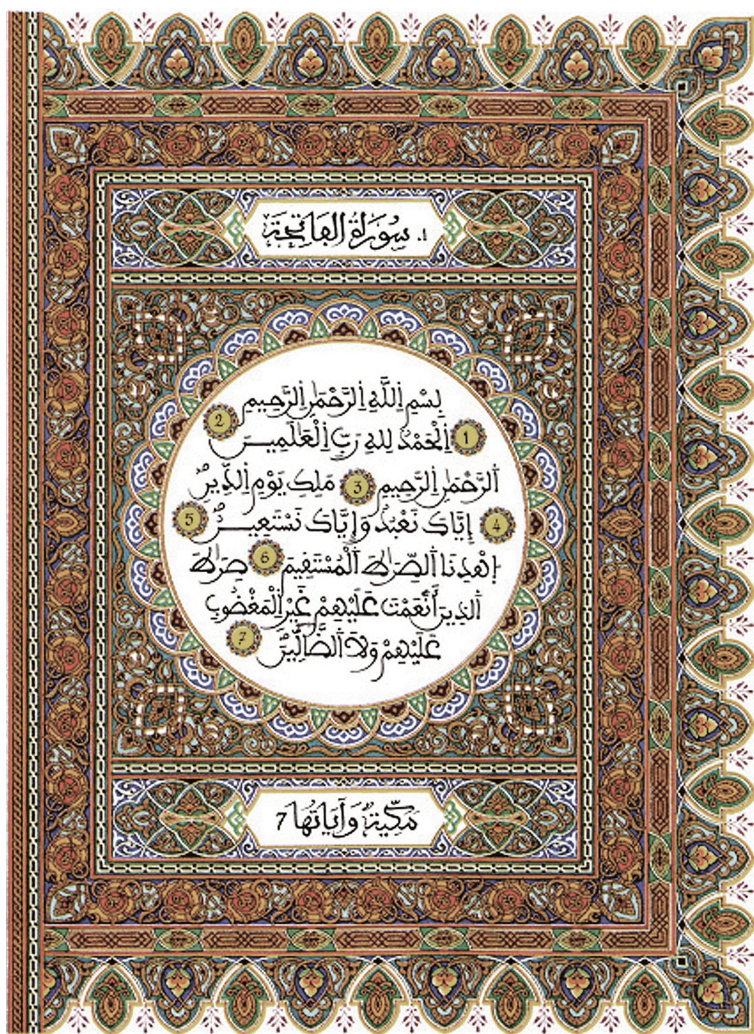 1. سُورَةُ الْفَاتِحَةِ
بِسْمِ اِللَّهِ اِلرَّحْمَٰنِ اِلرَّحِيمِ
1 اِلْحَمْدُ لِلهِ رَبِّ اِلْعَٰلَمِينَ 2
اَلرَّحْمَٰنِ اِلرَّحِيمِ 3 مَلِكِ يَوْمِ اِلدِّينِ
4 إِيَّاكَ نَعْبُدُ وَإِيَّاكَ نَسْتَعِينُ 5
اِهْدِنَا اَلصِّرَٰطَ اَلْمُسْتَقِيمَ 6 صِرَٰطَ
اَلذِينَ أَنْعَمْتَ عَلَيْهِمْ غَيْرِ اِلْمَغْضُوبِ
عَلَيْهِمْ وَلَا اَلضَّآلِّينَ 7
مَكِّيَّةٌ وَآيَاتُهَا 7